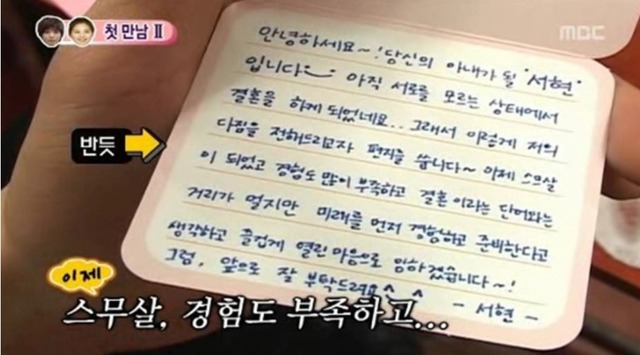 첫 만남 Ⅱ
MBC
안녕하세요~! 당신의 아내가 될 "서현"
입니다 아직 서로를 모르는 상태에서
결혼을 하게 되었네요.. 그래서 이렇게 저의
다짐을 전해드리고자 편지를 씁니다~ 이제 스무살
이 되었고 경험도 많이 부족하고 결혼이라는 단어와는
거리가 멀지만 미래를 먼저 경험하고 준비한다고
생각하고 즐겁게 열린 마음으로 임하겠습니다~!
그럼, 앞으로 잘 부탁드려요^ ^
- 서현 -
반듯
이제
스무살, 경험도 부족하고...